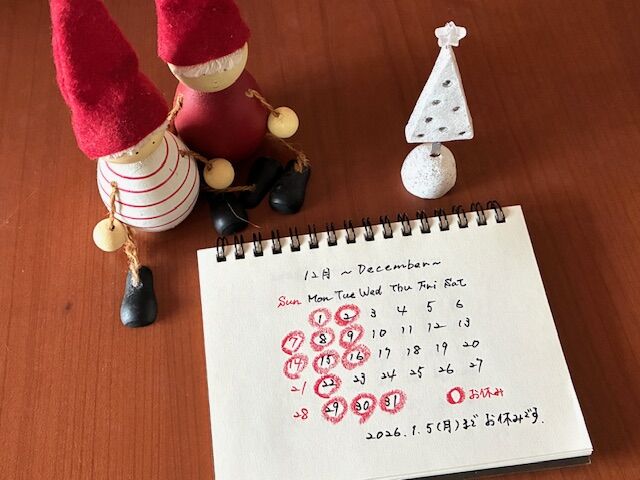 12月 ~December~
Sun Mon Tue Wed Thu Fri Sat
1 2 3 4 5 6
7 8 9 10 11 12 13
14 15 16 17 18 19 20
21 22 23 24 25 26 27
28 29 30 31
お休み
2026.1.5(月)まで お休みです.